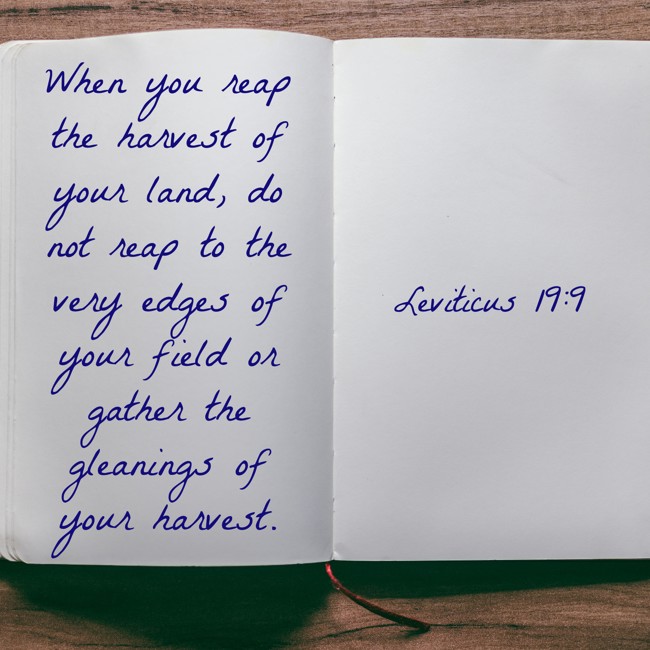 When you reap
the harvest of
your land, do
not reap to the
very edges of
your field or
gather the
gleanings of
your harvest.
Leviticus 19:9